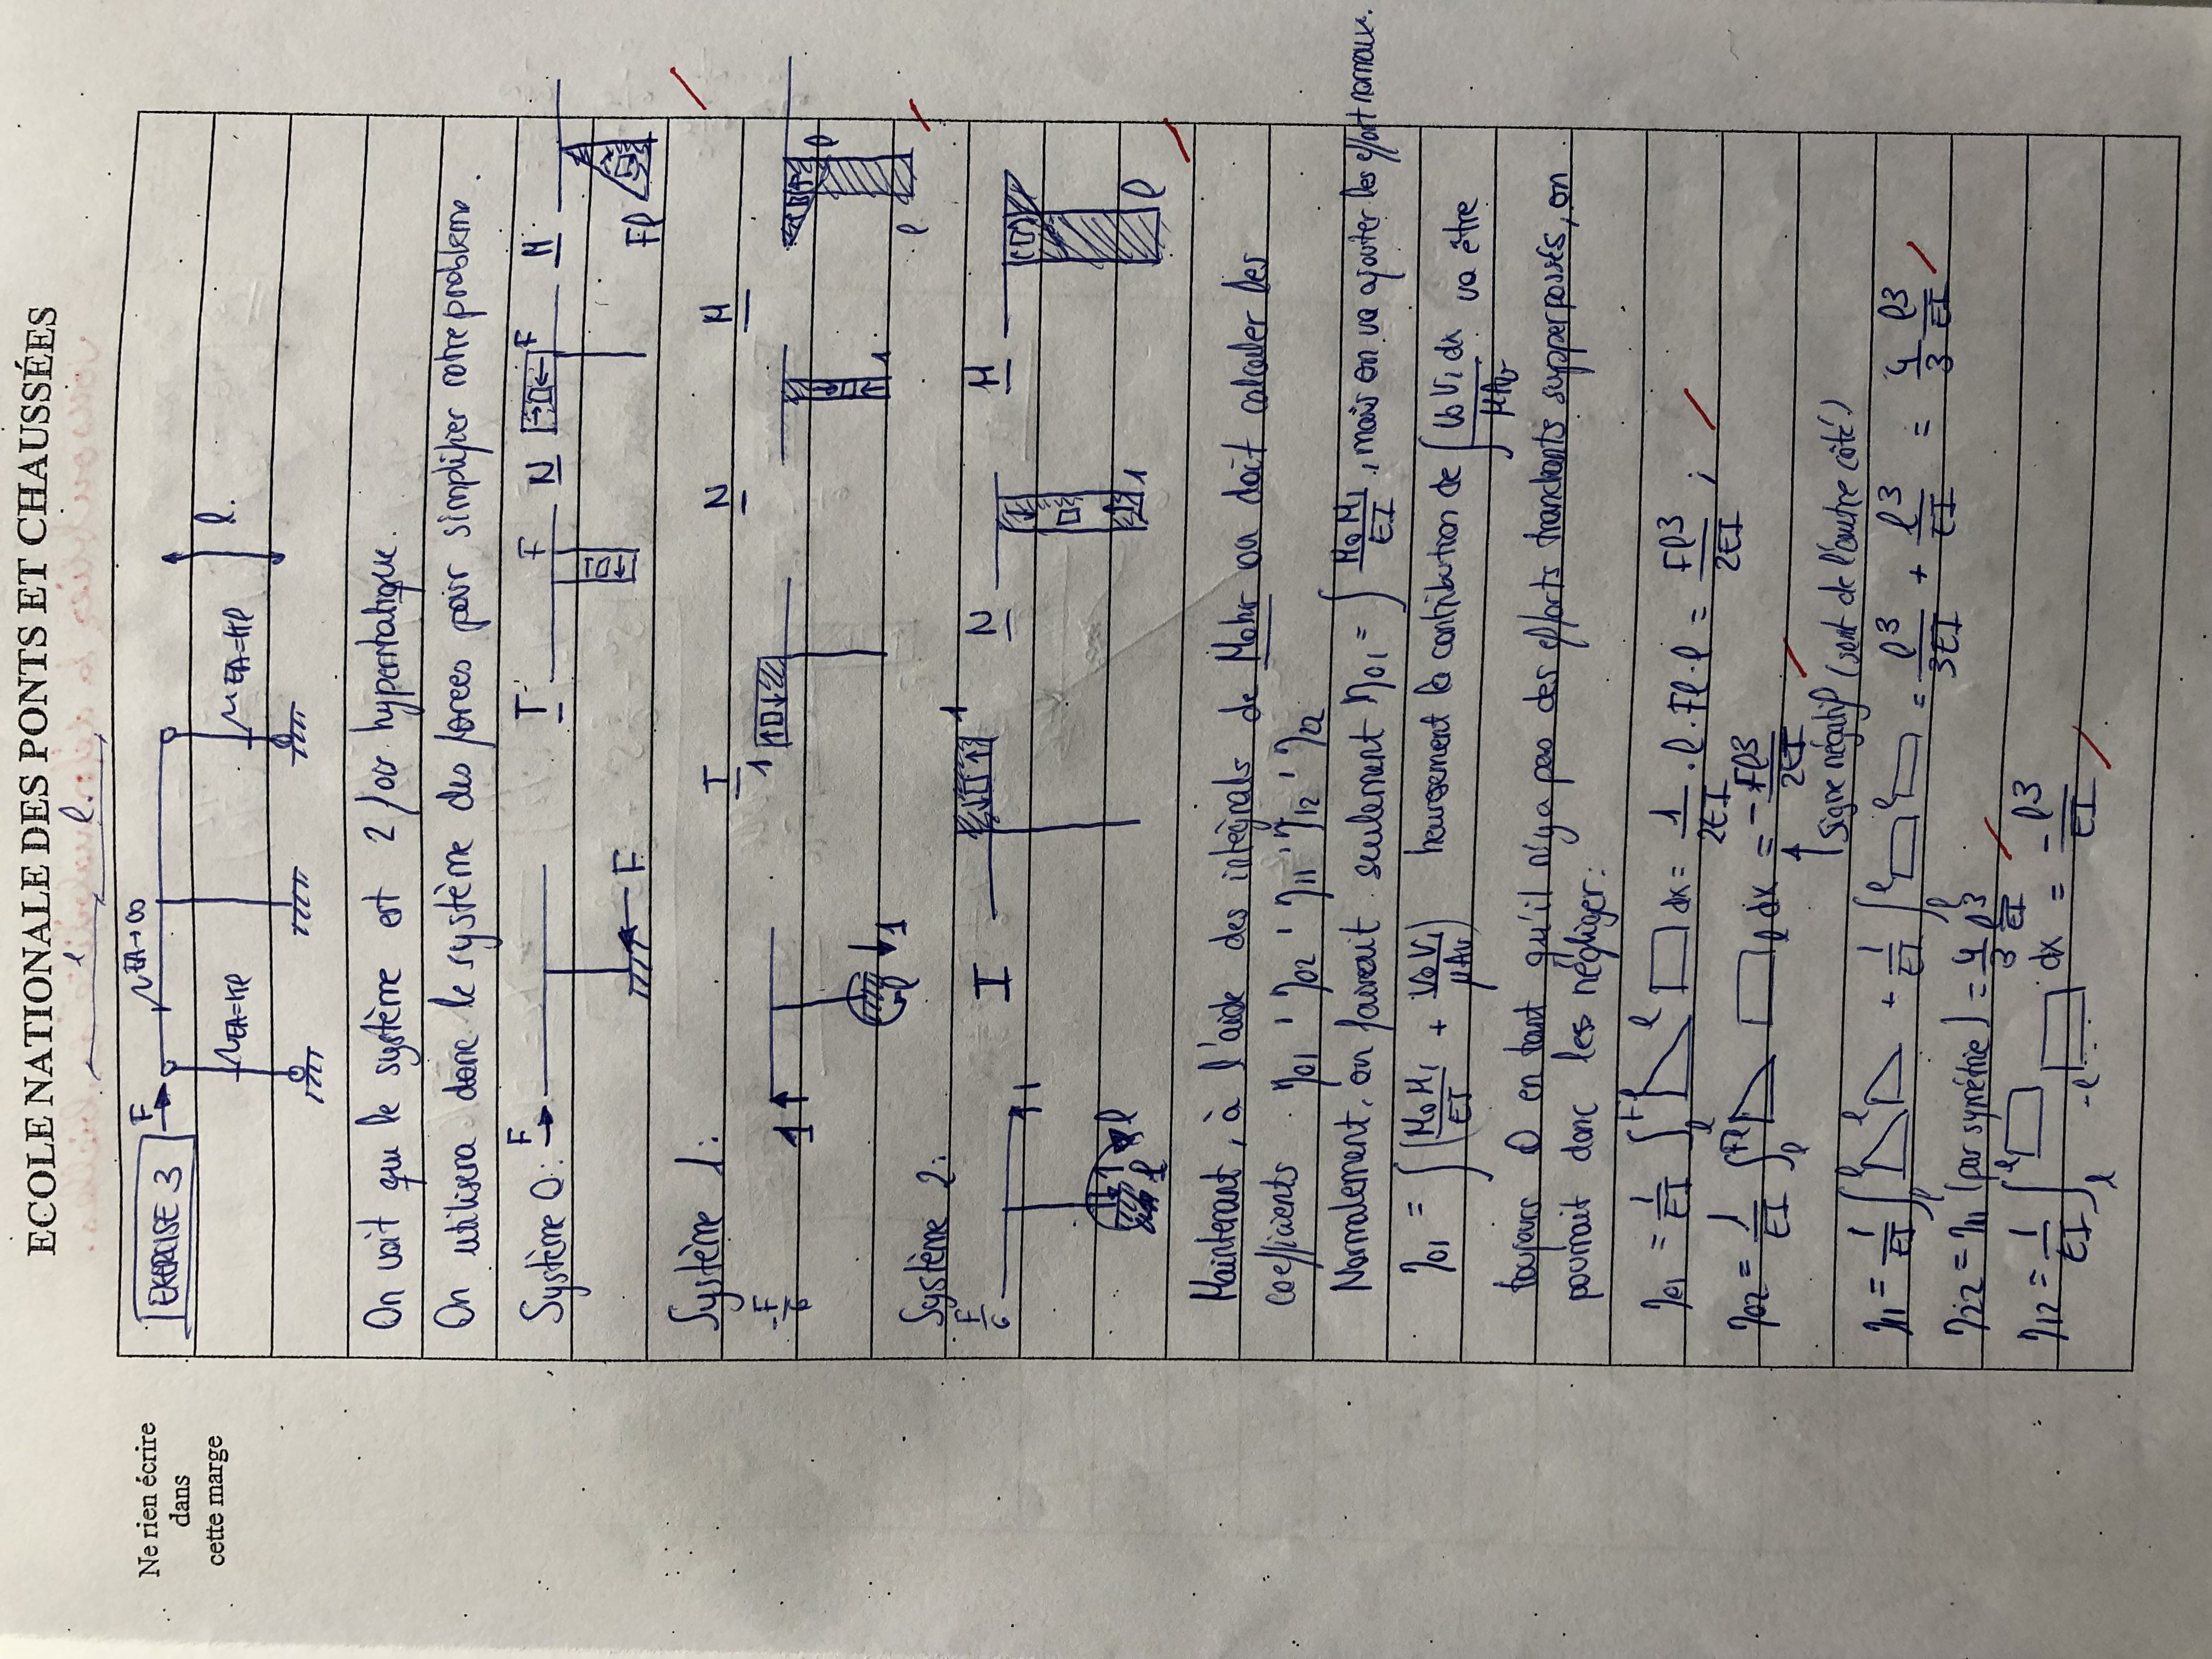 ECOLE NATIONALE DES PONTS ET CHAUSSÉES
Ne rien écrire
dans
cette marge
l. l.
EXERCISE 3 F EA→∞
EA=Hl EA=Hl l.
On voit que le système est 2 fois hyperstatique.
On utilisera donc le système des forces pour simplifier notre problème.
Système 0: F F T F N F M Fl
Système 1: T N M
-F/6 1 1 1 1 l l
Système 2: T N M
F/6 1 1 1 l l
Maintenant, à l'aide des intégrals de Mohr on doit calculer des
coefficients η01, η02, η11, η12, η22
Normalement, on fairait seulement η01 = ∫ M0M1/EI, mais on va ajouter les effort normaux.
η01 = ∫(M0M1/EI + V0V1/μAv) heureusement la contribution de ∫ V0V1dx/μAv va être
toujours 0 en tant qu'il n'y a pas des efforts tranchants supperposés, on
pourrait donc les négliger:
η01 = 1/EI ∫ l dx = 1/2EI . l . Fl . l = Fl3/2EI ;
η02 = 1/EI ∫ l dx = -Fl3/2EI
↑ signe négatif (sont de l'autre côté)
η11 = 1/EI ∫ l + 1/EI ∫ l l = l3/3EI + l3/EI = 4/3 l3/EI
η22 = η11 (par symétrie) = 4/3 l3/EI
η12 = 1/EI ∫ l -l dx = -l3/EI